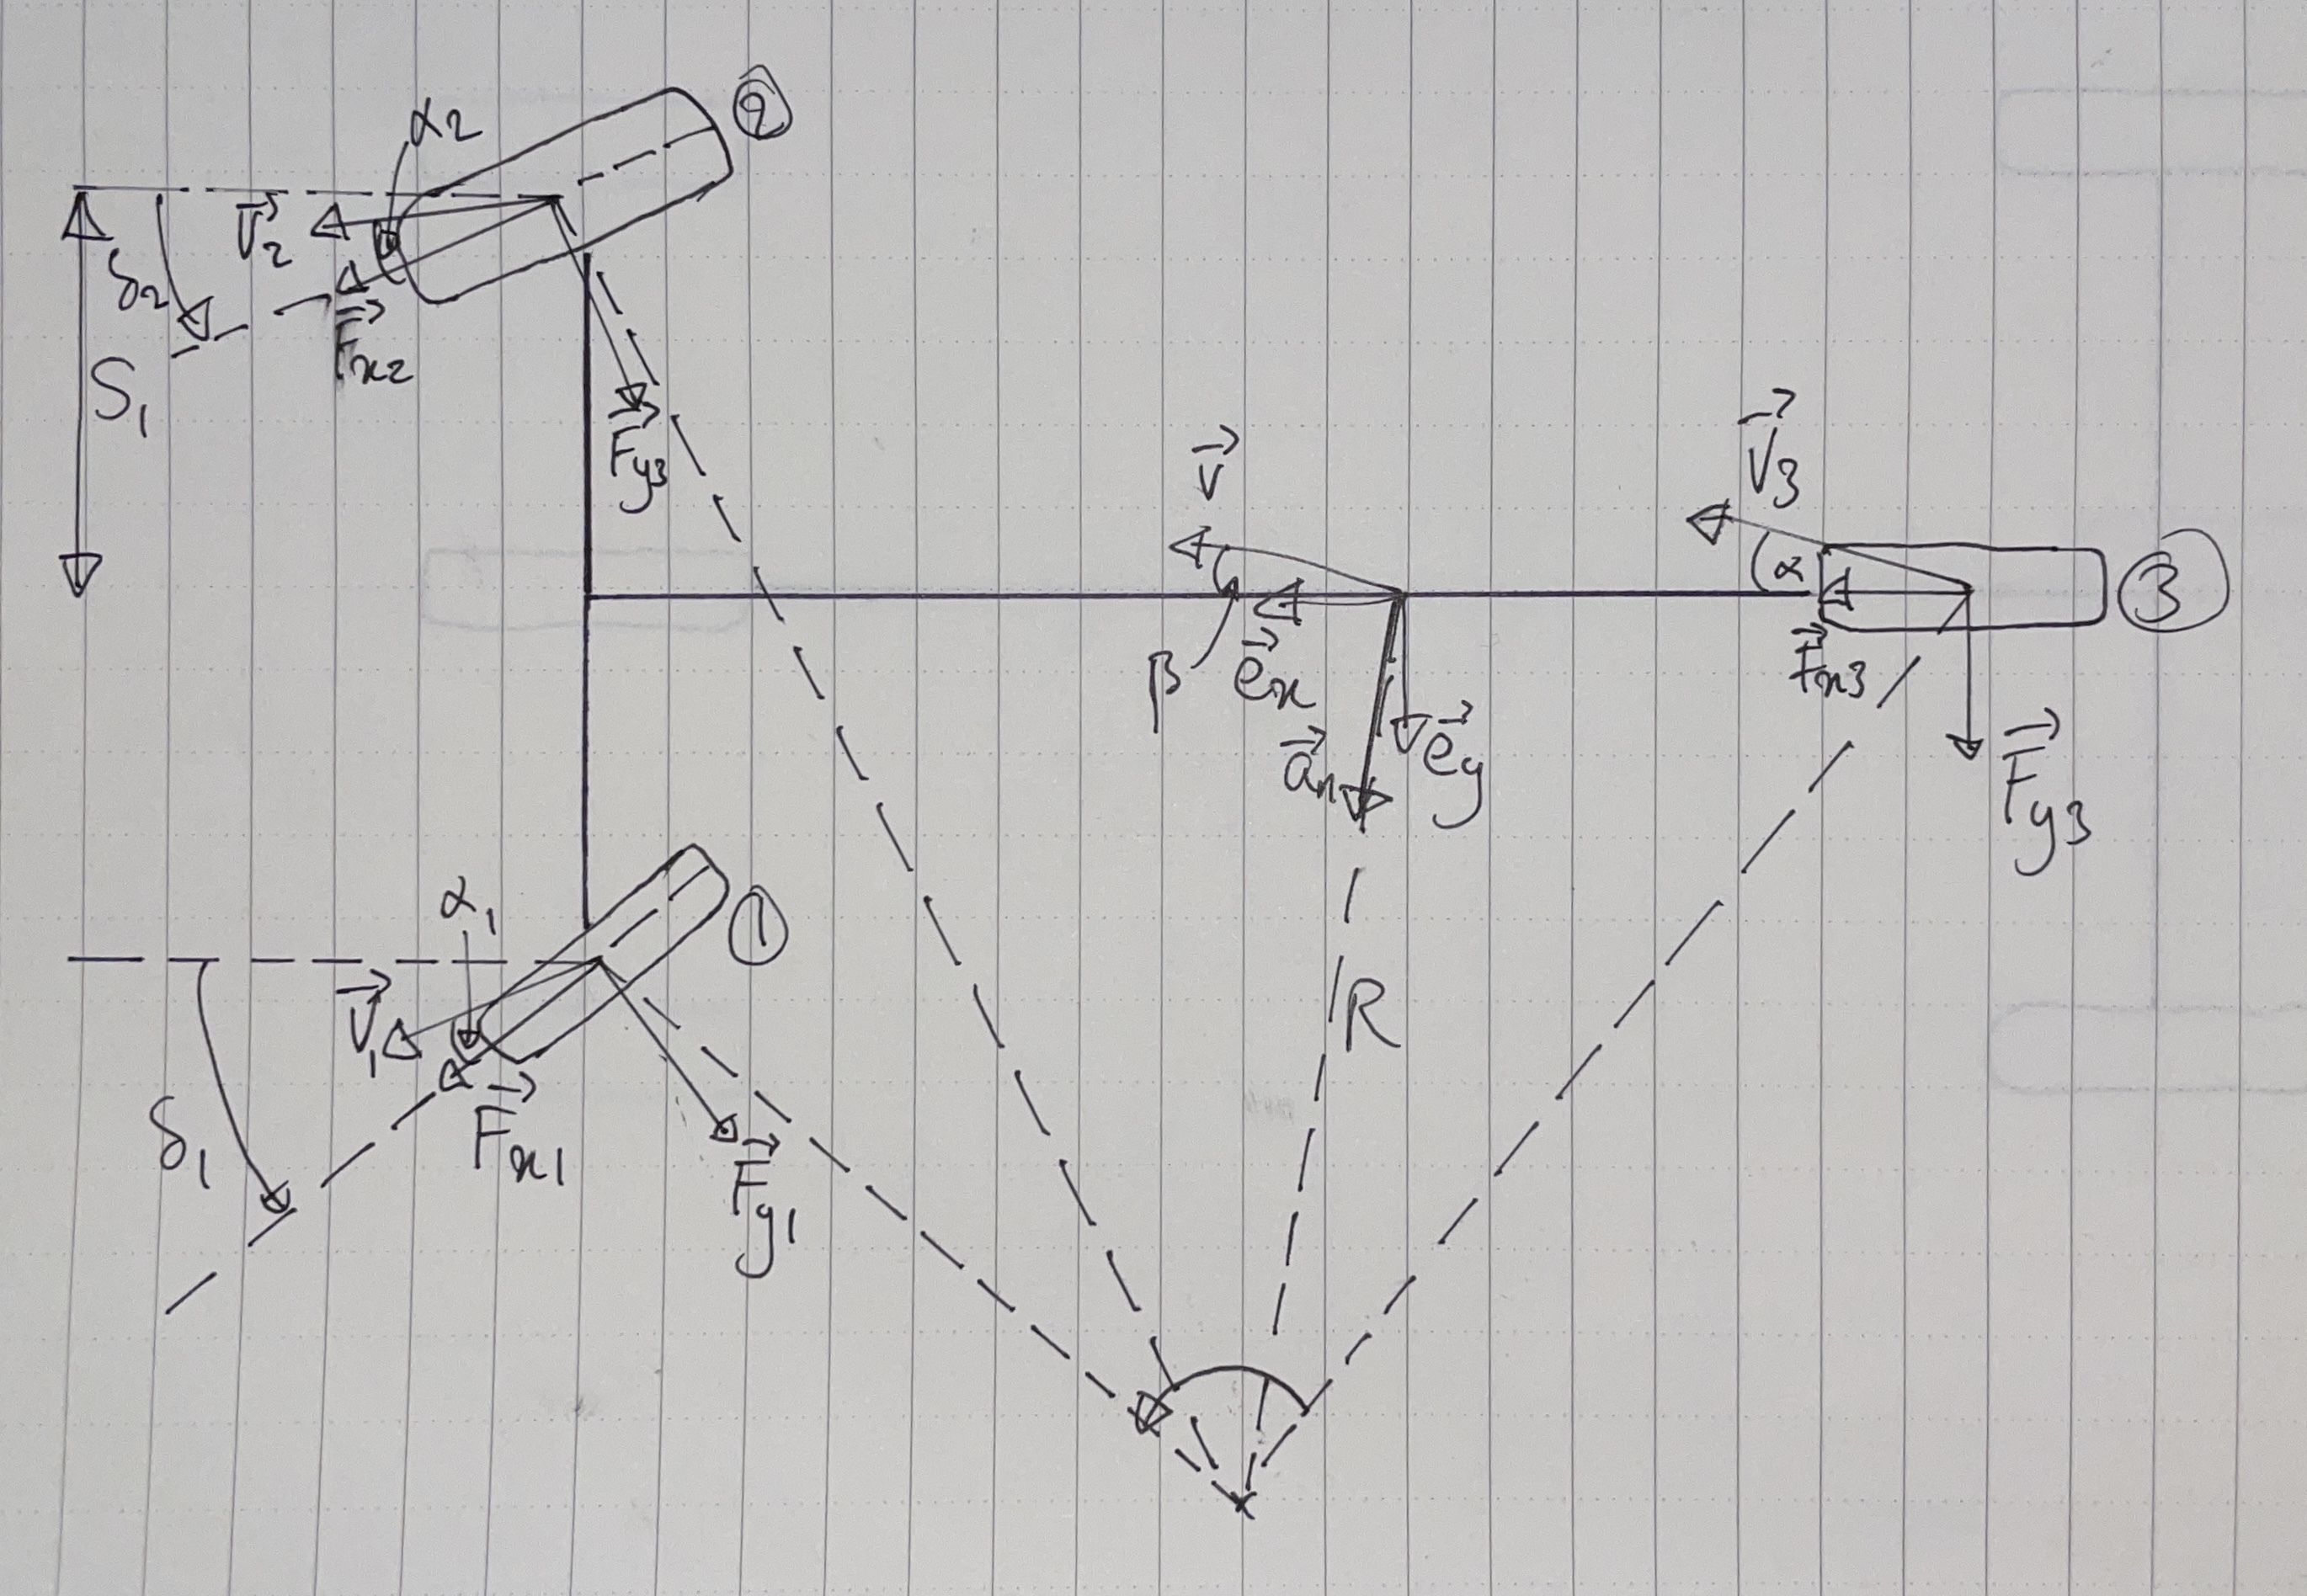 α₂
②
V⃗₂
δ₂
F⃗x₂
S₁
F⃗y₃
V⃗
V⃗₃
α
③
β
e⃗x
F⃗x₃
a⃗n
e⃗y
F⃗y₃
α₁
①
V⃗₁
R
δ₁
F⃗x₁
F⃗y₁